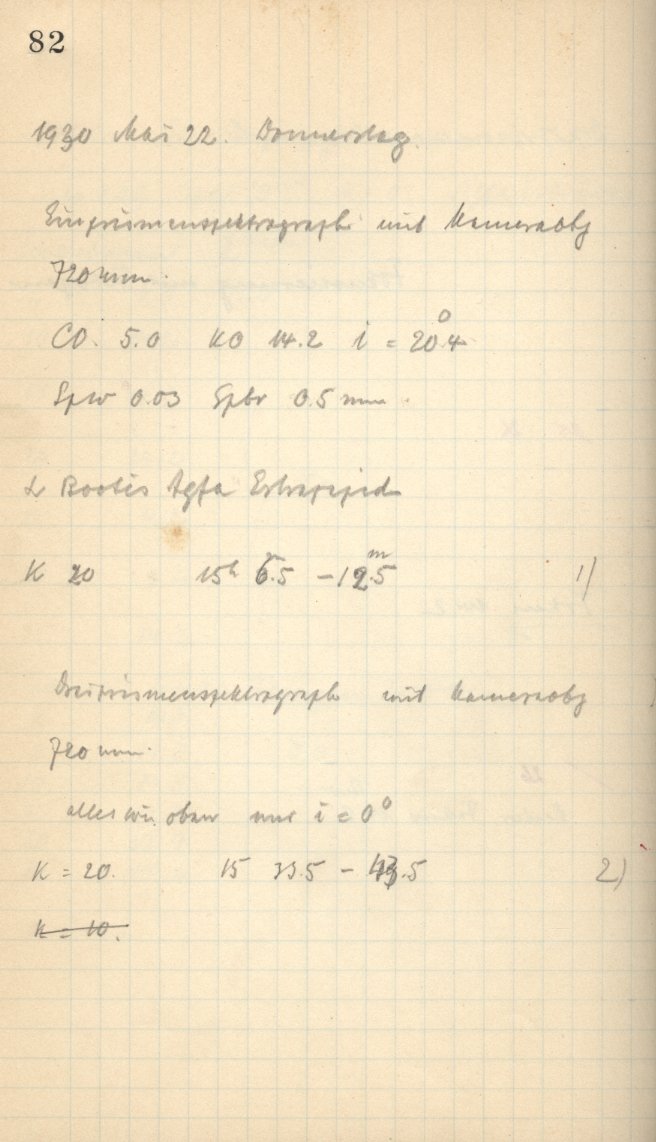 82
1930 Mai 22. Donnerstag.
Einprismenspektrograph mit Kameraobj
720 mm.
CO. 5.0 KO 14.2 i = 20.4°
Spw 0.03 Spbr 0.5 mm.
α Bootis Agfa Extrarapid
K 20 15h 6.5 – 12.5m 1)
Dreiprismenspektrograph mit Kameraobj
720 mm.
alles wie oben nur i = 0°
K = 20. 15 33.5 – 43.5 2)
K = 10.